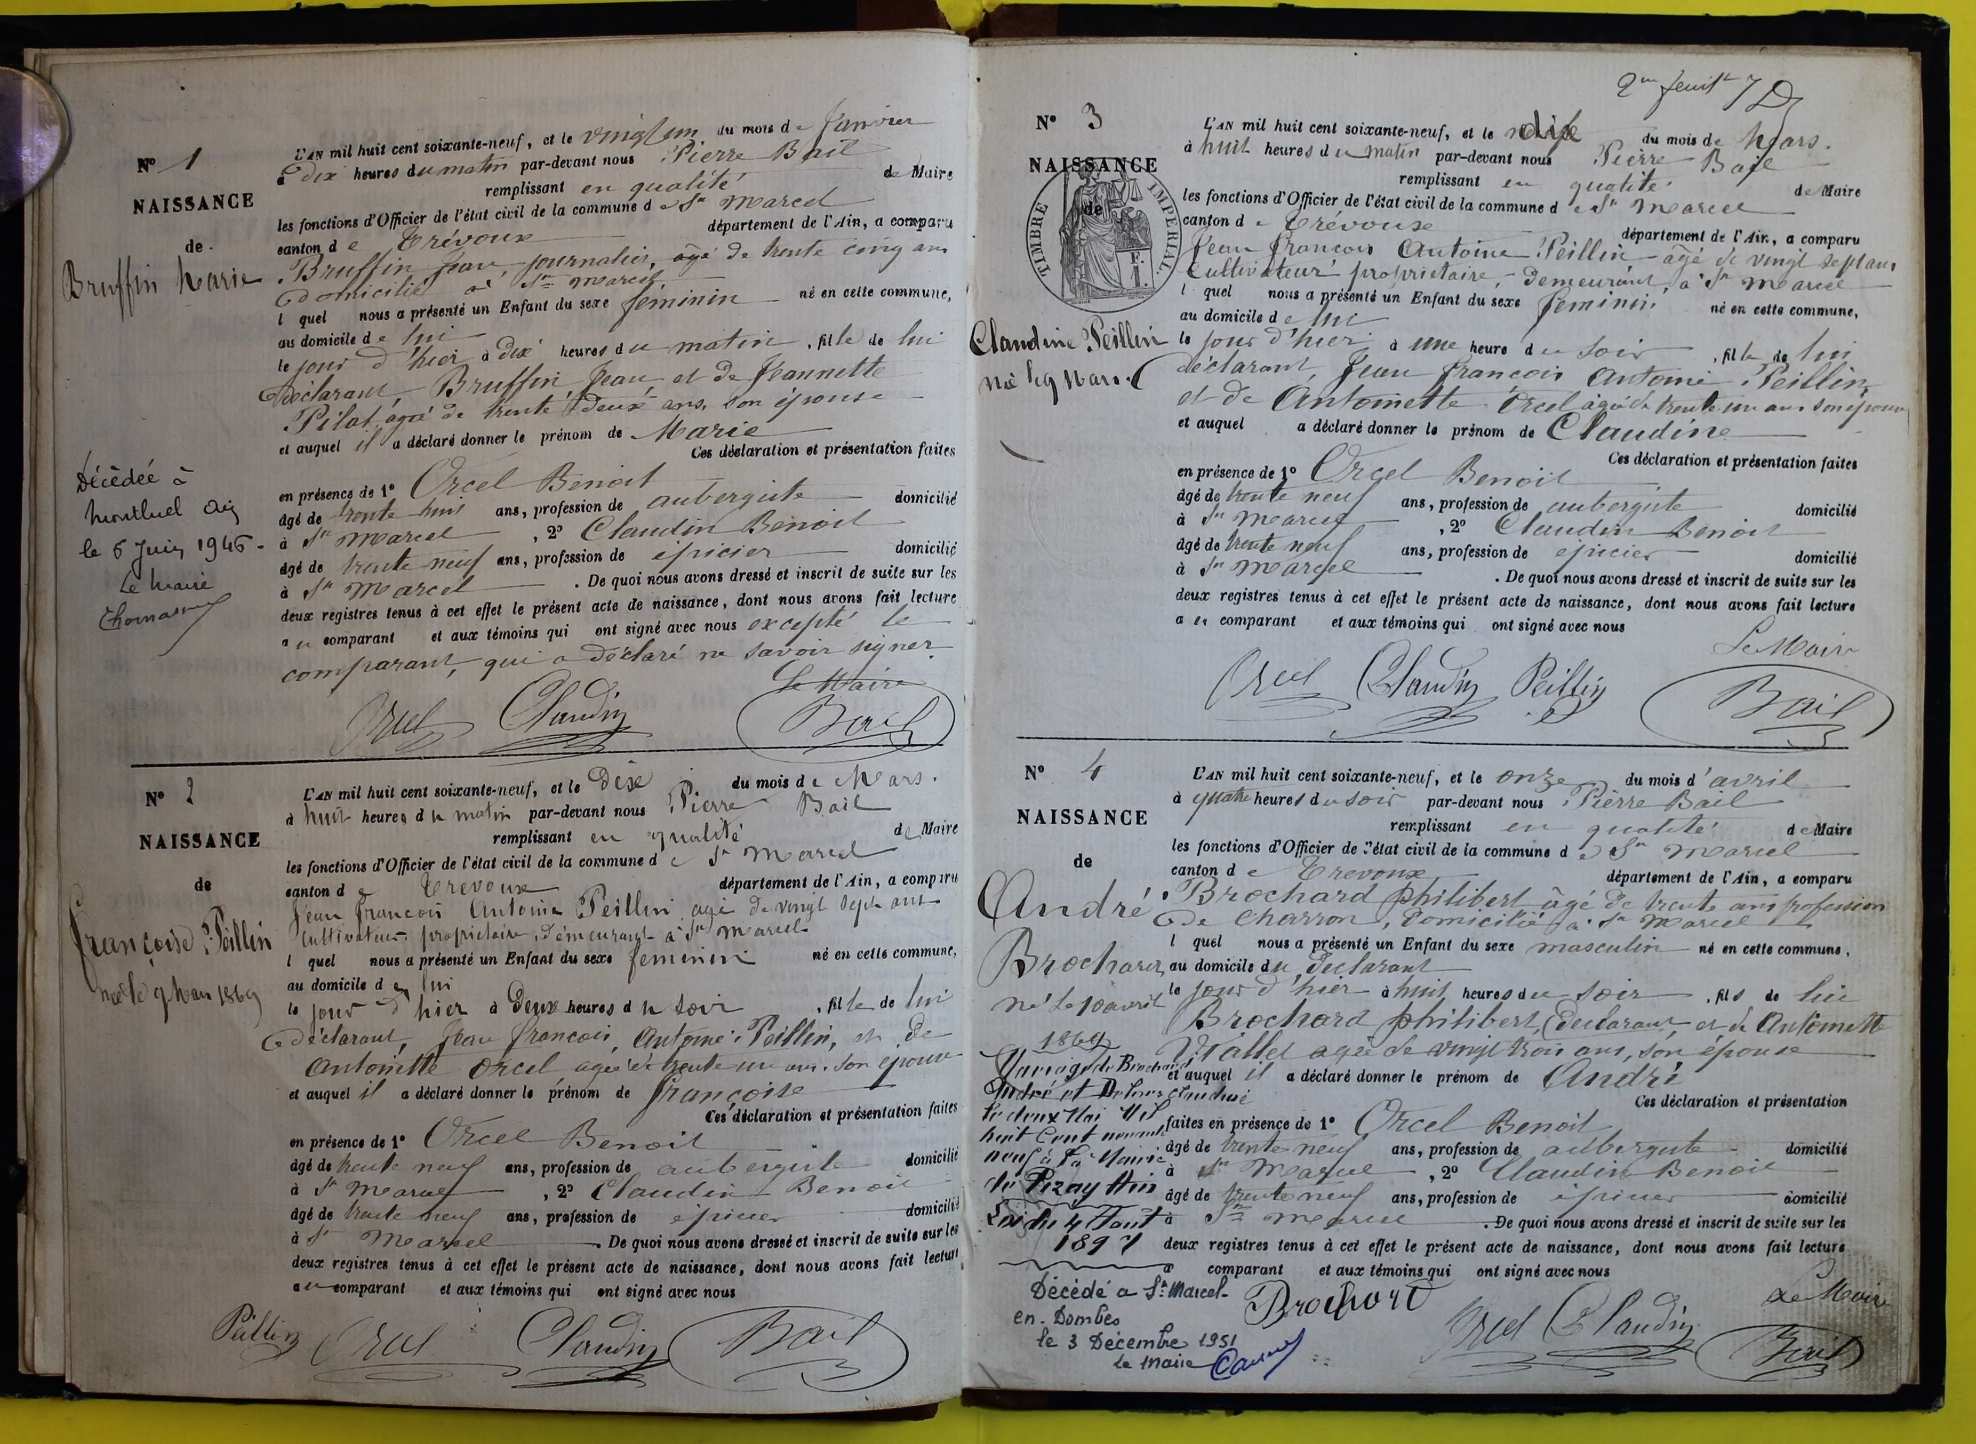 N° 1
NAISSANCE
de
Bruffin Marie
L'AN mil huit cent soixante-neuf, et le vingt un du mois de Janvier
à dix heures du matin par-devant nous Pierre Bail
remplissant en qualité de Maire
les fonctions d'Officier de l'état civil de la commune de St Marcel
canton de Trévoux département de l'Ain, a comparu
Bruffin Jean journalier, âgé de trente cinq ans
domicilié à St Marcel
l quel nous a présenté un Enfant du sexe féminin né en cette commune,
au domicile de lui
le jour d'hier à dix heures du matin, fille de lui
déclarant, Bruffin Jean, et de Jeannette
Pilat, agée de trente deux ans, son épouse
et auquel il a déclaré donner le prénom de Marie
Ces déclaration et présentation faites
en présence de 1° Orcel Benoit
âgé de trente huit ans, profession de aubergiste domicilié
à St Marcel, 2° Claudin Benoit
âgé de trente neuf ans, profession de épicier domicilié
à St Marcel. De quoi nous avons dressé et inscrit de suite sur les
deux registres tenus à cet effet le présent acte de naissance, dont nous avons fait lecture
au comparant et aux témoins qui ont signé avec nous excepté le
comparant, qui a déclaré ne savoir signer.
Le Maire
Orcel Claudin Bail
Décédée à
Montluel Ain
le 6 Juin 1946.
Le Maire
N° 2
NAISSANCE
de
Françoise Peillin
née le 9 Mars 1869
L'AN mil huit cent soixante-neuf, et le dix du mois de Mars.
à huit heures du matin par-devant nous Pierre Bail
remplissant en qualité de Maire
les fonctions d'Officier de l'état civil de la commune de St Marcel
canton de Trevoux département de l'Ain, a comparu
Jean François Antoine Peillin agé de vingt sept ans
cultivateur propriétaire, demeurant à St Marcel
l quel nous a présenté un Enfant du sexe feminin né en cette commune,
au domicile de lui
le jour d'hier à deux heures du soir, fille de lui
déclarant, Jean François Antoine Peillin, et de
Antoinette Orcel agée de trente un ans son épouse
et auquel il a déclaré donner le prénom de Françoise
Ces déclaration et présentation faites
en présence de 1° Orcel Benoit
âgé de trente neuf ans, profession de aubergiste domicilié
à St Marcel, 2° Claudin Benoit
âgé de trente neuf ans, profession de épicier domicilié
à St Marcel. De quoi nous avons dressé et inscrit de suite sur les
deux registres tenus à cet effet le présent acte de naissance, dont nous avons fait lecture
au comparant et aux témoins qui ont signé avec nous
Peillin Orcel Claudin Bail
N° 3
NAISSANCE
de
TIMBRE IMPÉRIAL.
Claudine Peillin
née le 9 Mars.
L'AN mil huit cent soixante-neuf, et le dix du mois de Mars.
à huit heures du matin par-devant nous Pierre Bail
remplissant en qualité de Maire
les fonctions d'Officier de l'état civil de la commune de St Marcel
canton de Trévoux département de l'Ain, a comparu
Jean François Antoine Peillin âgé de vingt sept ans
cultivateur propriétaire, demeurant à St Marcel
l quel nous a présenté un Enfant du sexe feminin né en cette commune,
au domicile de lui
le jour d'hier à une heure du soir, fille de lui
déclarant, Jean François Antoine Peillin
et de Antoinette Orcel agée de trente un ans son épouse
et auquel a déclaré donner le prénom de Claudine
Ces déclaration et présentation faites
en présence de 1° Orcel Benoit
âgé de trente neuf ans, profession de aubergiste domicilié
à St Marcel, 2° Claudin Benoit
âgé de trente neuf ans, profession de épicier domicilié
à St Marcel. De quoi nous avons dressé et inscrit de suite sur les
deux registres tenus à cet effet le présent acte de naissance, dont nous avons fait lecture
au comparant et aux témoins qui ont signé avec nous
Le Maire
Orcel Claudin Peillin Bail
N° 4
NAISSANCE
de
André
Brochard
né le 10 avril
1869
L'AN mil huit cent soixante-neuf, et le onze du mois d'avril
à quatre heures du soir par-devant nous Pierre Bail
remplissant en qualité de Maire
les fonctions d'Officier de l'état civil de la commune de St Marcel
canton de Trevoux département de l'Ain, a comparu
Brochard Philibert âgé de trente ans profession
de charron, domicilié à St Marcel
l quel nous a présenté un Enfant du sexe masculin né en cette commune,
au domicile du déclarant
le jour d'hier à huit heures du soir, fils de lui
Brochard philibert, déclarant, et de Antoinette
Viallet agée de vingt trois ans, son épouse
et auquel il a déclaré donner le prénom de André
Ces déclaration et présentation
faites en présence de 1° Orcel Benoit
âgé de trente neuf ans, profession de aubergiste domicilié
à St Marcel, 2° Claudin Benoit
âgé de trente neuf ans, profession de épicier domicilié
à St Marcel. De quoi nous avons dressé et inscrit de suite sur les
deux registres tenus à cet effet le présent acte de naissance, dont nous avons fait lecture
a comparant et aux témoins qui ont signé avec nous
Le Maire
Brochard Orcel Claudin Bail
Mariage de Brochard
André et Claudine
le deux Mai Mil
huit Cent nonante
neuf à la Mairie
de Pizay Ain
Loi du 4 Août
1897
Décédé a St Marcel-
en-Dombes
le 3 Décembre 1951
Le Maire